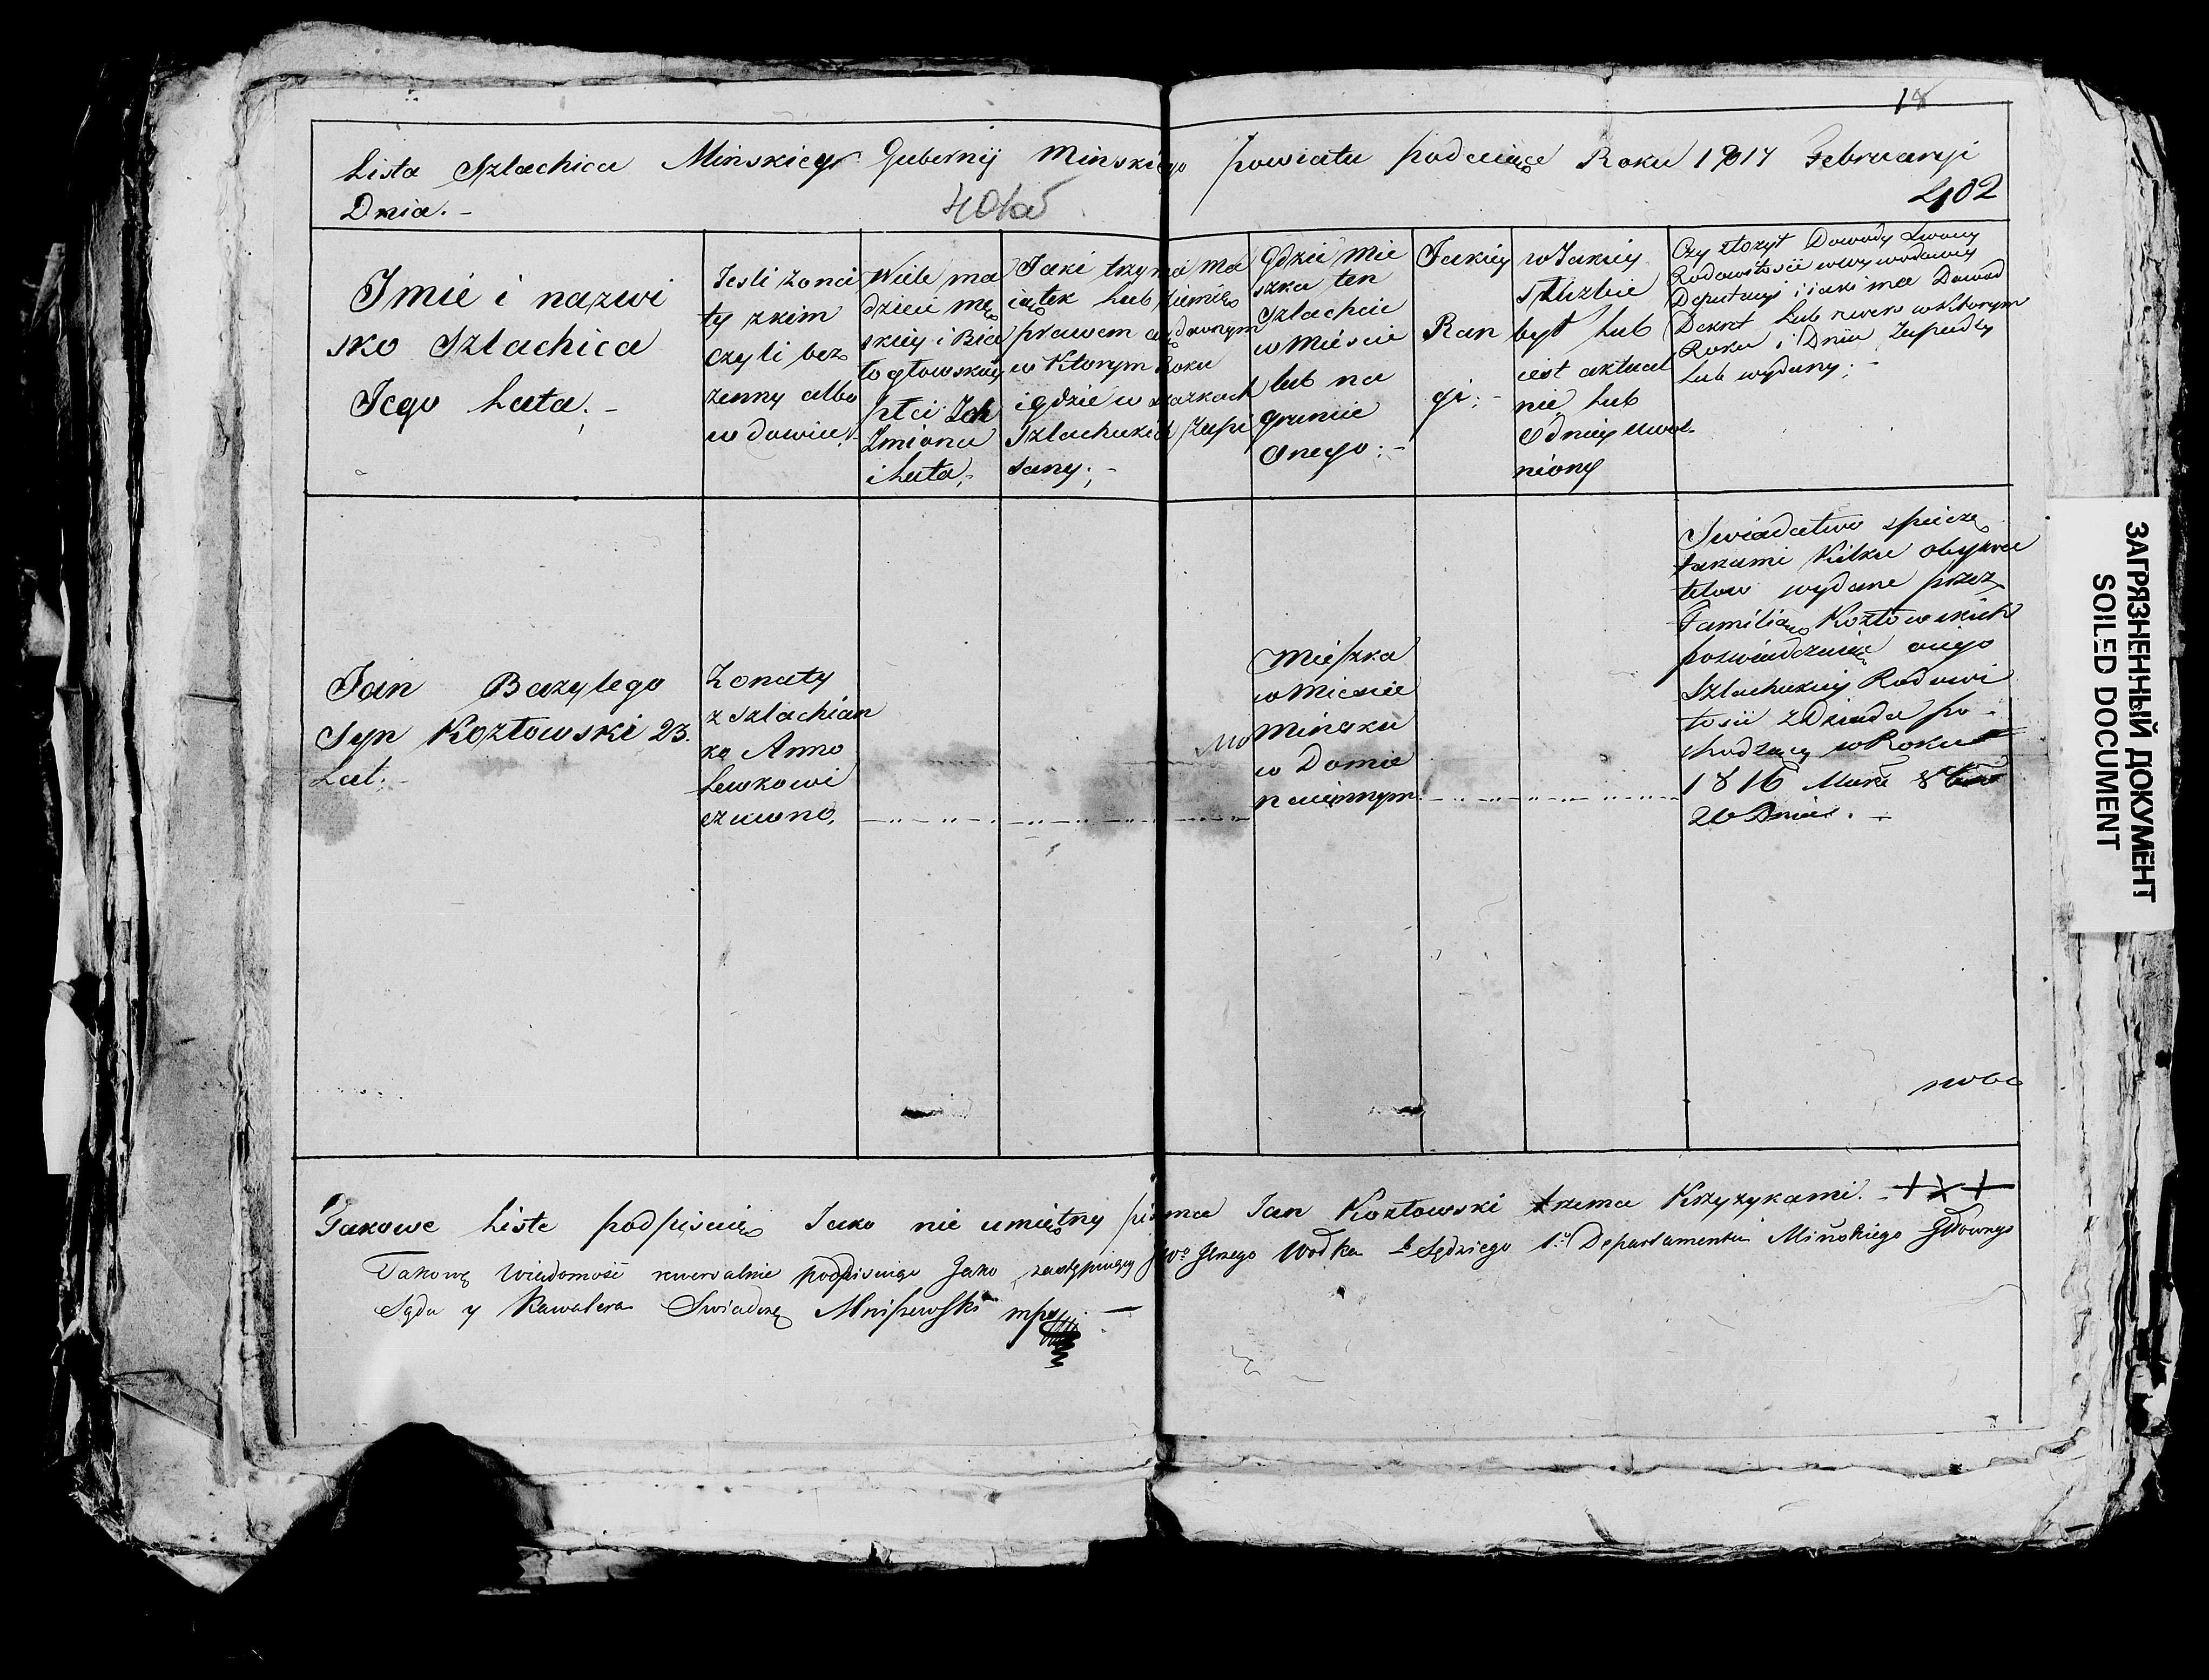 18
Lista Szlachica Minskiey Gubernij Minskiego powiatu podaiące Roku 1817 Februaryi
Dnia. -
401a
402
Imie i nazwi
sko Szlachica
Jego Lata; -
Jesli żona
ty z kim
czyli bez
żenny albo
wdowiec
Wiele ma
dzieci mę
skiey i Bia
łogłowskiey
płci Ich
Imiona
i Lata; -
Jaki trzyma ma
iątek Lub ziemię
prawem
w Ktorym Roku
i gdzie w skazkach
Szlacheckich Zapi
sany; -
Gdzie Mie
szka ten
Szlachcic
w Miescie
lub na
gruncie
Onego: -
Jakiey
Ran
gi: -
w Jakiey
Służbie
był Lub
iest aktual
nie Lub
Odniey uwol
niony
Czy złożył Dowody Swoiey
Rodowitosci w wywodowey
Deputacyi i iaki ma Dowod
Dekret Lub rewers w Ktorym
Roku i Dniu Zapadły
Lub wydany; -
Jan Bazylego
Syn Kozłowski 23.
Lat; -
Żonaty
z szlachian
ką Anno
Lewkowi
czuwno,
Mieszka
w Miescie
Minsku
w Domie
naiemnym
Swiadectwo spieczę
tarami Kilku obywa
telow wydane przez
Familią Kozłowskich
poswiadczaiące onego
Szlacheckiey Rodowi
tosci z Dziada po -
chodzącey w Roku
1816
26 Dnia. -
Jakowe Liste podpisuię Jako nie umiętny pisma Jan Kozłowski trzema Krzyzykami. - + x +
Takową Wiadomość rewersalnie podpisuiąc Jako zastępuiący Jgnego Wodka Sędziego 1º Departamentu Mińskiego Głownego
Sądu y Kawalera Swiadczę Mniszewski mp -
ЗАГРЯЗНЕННЫЙ ДОКУМЕНТ
SOILED DOCUMENT